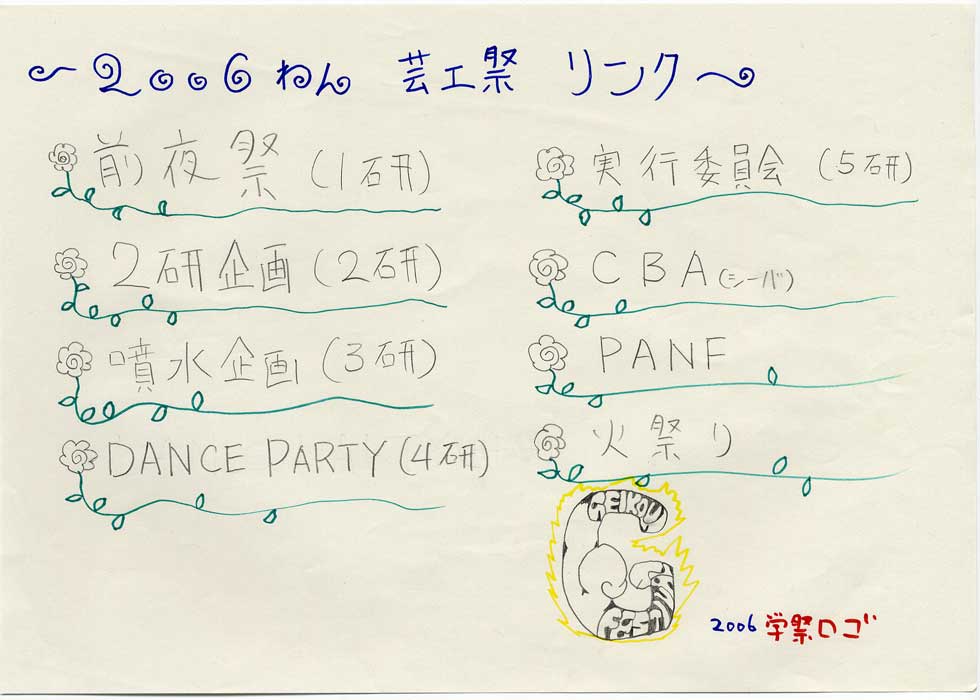 ～2006ねん 芸工祭 リンク～
前夜祭（1研）
2研企画（2研）
噴水企画（3研）
DANCE PARTY（4研）
実行委員会（5研）
CBA（シーバ）
PANF
火祭り
GEIKOU
FEST
2006 学祭ロゴ